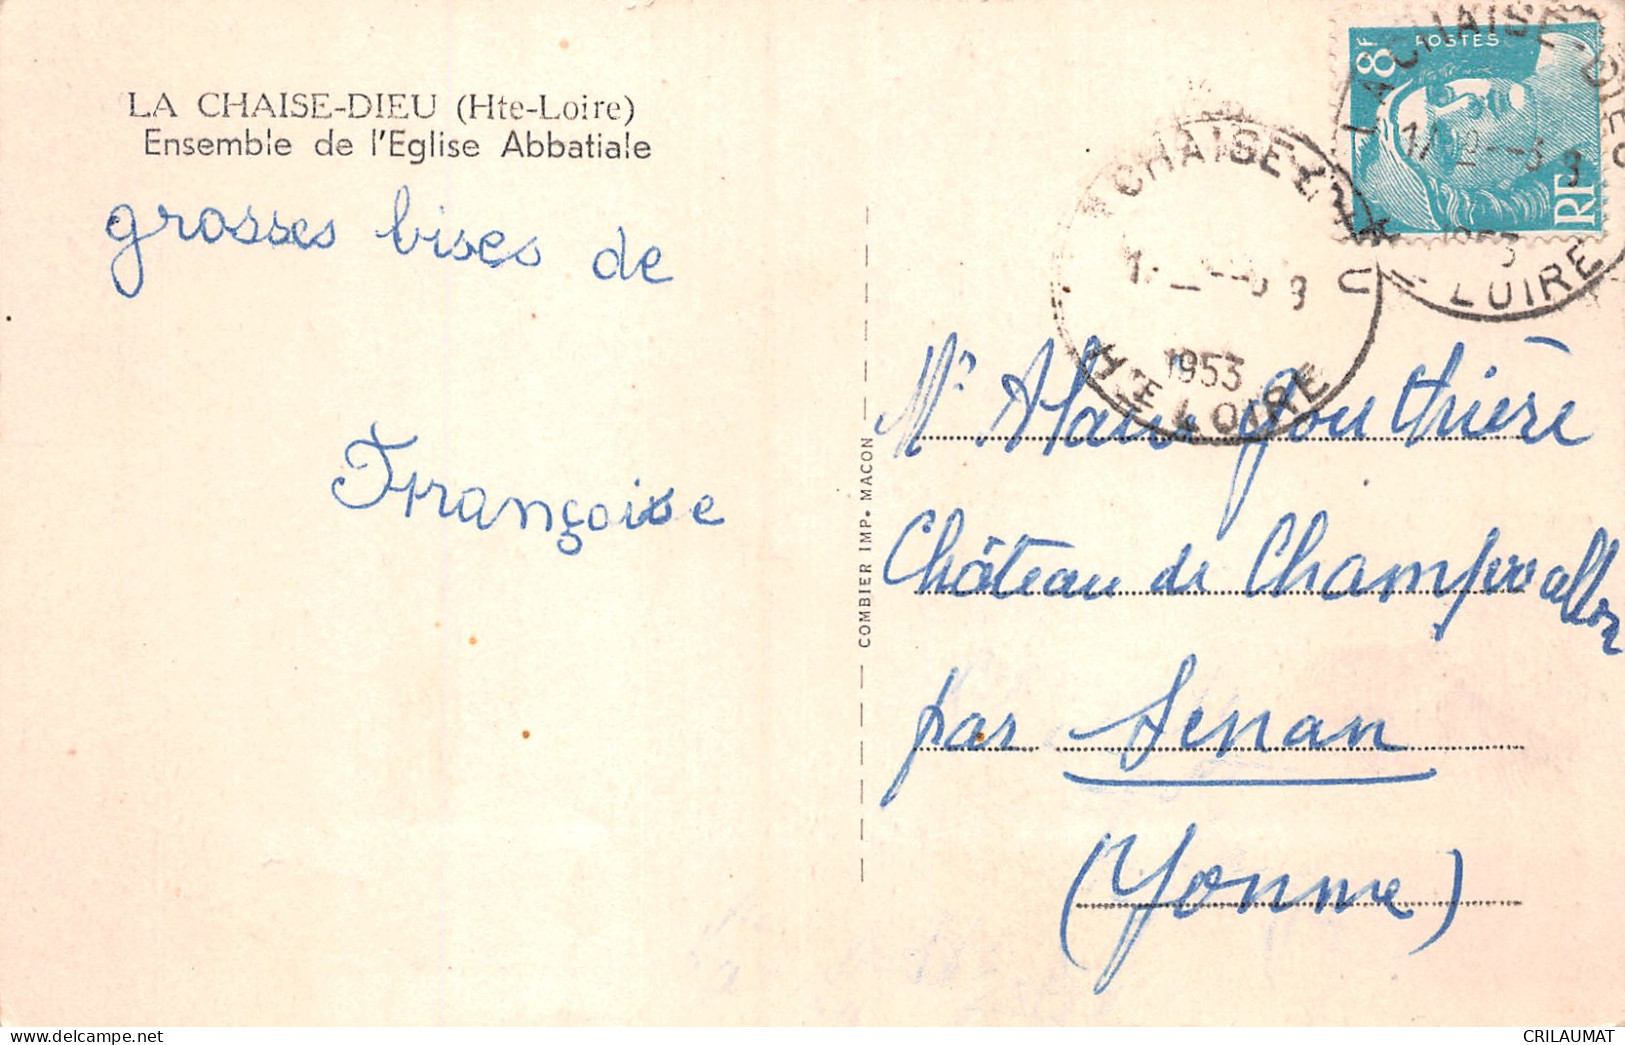 LA CHAISE-DIEU (Hte-Loire)
Ensemble de l'Eglise Abbatiale
grosses bises de
Françoise
COMBIER IMP. MACON
8F
POSTES
RF
LA CHAISE-DIEU
1953
LOIRE
CHAISE-
1953
HTE LOIRE
Mr Alain Gouthière
Château de Champvallon
par Senan
(Yonne)
CRILAUMAT